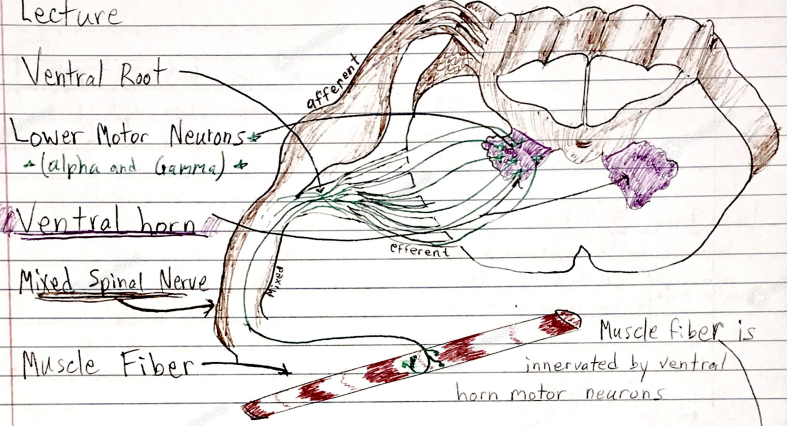 Lecture
Ventral Root
afferent
Lower Motor Neurons
(alpha and Gamma)
Ventral horn
efferent
Mixed Spinal Nerve
Mixed
Muscle Fiber
Muscle fiber is
innervated by ventral
horn motor neurons